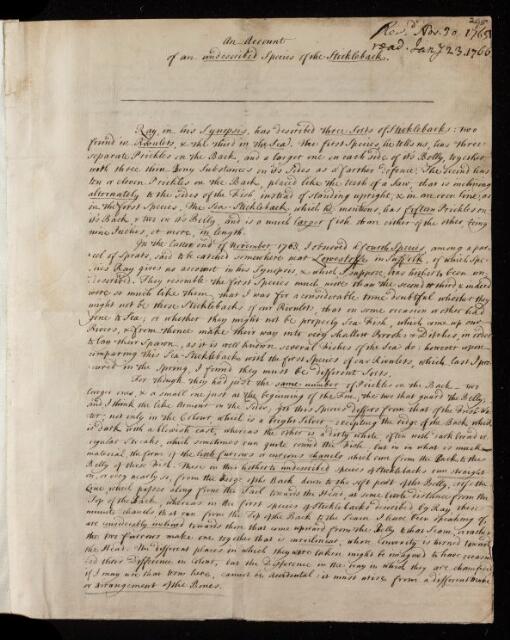 295
Rec.d Nov. 20. 1765
read Jany 23. 1766
An Account
of an undescribed Species of the Stickleback.
Ray, in his Synopsis, has described three Sorts of Sticklebacks: two
found in Rivulets, & the third in the Sea. The first Species, he tells us, has three
separate Prickles on the Back, and a larger one on each side of its Belly, together
with three thin Bony Substances on its Sides as a farther defence. The Second has
ten or eleven Prickles on the Back, placed like the teeth of a Saw, that is inclining
alternately to the Sides of the Fish, instead of standing upright, & in an even line, as
in the first Species. The Sea-Stickleback, which he mentions, has fifteen Prickles on
its Back & two on its Belly, and is a much larger fish than either of the other, being
nine Inches, or more, in length.
In the latter end of November 1763. I observed a fourth Species, among a par-
cel of Sprats, said to be catched somewhere near Lowestoffe in Suffolk, of which Spe-
cies Ray gives no account in his Synopsis, & which I suppose has hitherto been un-
described. They resemble the first Species much more than the second or third, & indeed
were so much like them, that I was for a considerable time doubtful whether they
might not be those Sticklebacks of our Rivulets, that on some occasion or other had
gone to Sea; or whether they might not be properly Sea-Fish, which come up our
Rivers, & from thence make their way into very shallow Brooks or Ditches, in order
to lay their Spawn, as it is well known several Fishes of the Sea do: however upon
comparing this Sea-Stickleback with the first Species of our Rivulets, which last I pro-
cured in the Spring, I found they must be different Sorts.
For though they had just the same number of Prickles on the Back, two
larger ones, & a small one just at the beginning of the Fin, the two that guard the Belly,
and I think the like Armour on the Sides, yet this Species differs from that of the Fresh Wa-
ter; not only in the Colour which is a bright Silver, excepting the ridge of the Back, which
is dark with a blewish cast, whereas the other is a dirty white, often with such broad ir-
regular Streaks, which sometimes run quite round the Fish, but in what is more
material, the form of the little furrows or curious chanels which run from the Back to the
Belly of these Fish. These in this hitherto undescribed species of Sticklebacks run straight
in, or very nearly so, from the Ridge of the Back down to the soft part of the Belly, cross the
Line which passes along from the Tail towards the Head, at some little distance from the
Top of the Back, whereas in the first species of Sticklebacks described by Ray, these
minute chanels that run from the Top of the Back to the Seam I have been speaking of,
are considerably inclined towards those that come upward from the Belly to that Seam, so that
the two Furrows make one together that is curvilinear, whose Concavity is turned toward
the Head. The different places in which they were taken might be imagined to have occasion-
ed their difference in Colour, but the difference in the way in which they are chamfered,
if I may use that term here, cannot be accidental: it must arise from a different make
or arrangement of the Bones.